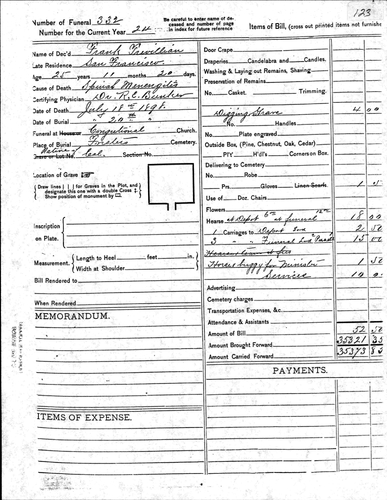 123
Number of Funeral 332
Number for the Current Year 24
Be carefu to enter name of deceased and number of page in index for future reference
Items of Bill, (cross out printed items not furnished
Name of Dec'd Frank Trevillian
Late Residence San Francisco
Age 25 years 11 months 20 days.
Cause of Death Spinal Menengitis
Certifying Physician Dr. R.E. Bunker
Date of Death July 18th 1898.
Date of Burial " 20th "
Funeral at House or Congretional Church.
Place of Burial Cemetery.
Cal. Section No.
Location of Grave
Draw lines for Graves in the Plot, and designate this one with a double Cross
Show position of monument by
Inscription on Plate.
Measurement. Length to Heel feet in.
Width at Shoulder
Bill Rendered to
When Rendered
MEMORANDUM.
ITEMS OF EXPENSE.
Door Crape
Draperies Candelabra and Candles.
Washing & Laying out Remains, Shaving
Preservation of Remains
No. Casket. Trimming.
Digging Grave 4 00
No. Handles
Plate engraved
Outside Box, (Pine, Chestnut, Oak, Cedar)
Pty H'd's Corners on Box.
Delivering to Cemetery
No. Robe
Prs. Gloves Linen Scarfs
Use of Doc. Chairs
Flowers
Hearse at Depot 6 00 at funeral 12 00 18 00
1 Carriages to Depot 2 50
3 " Funeral 15 00
Horse & buggy for Minister 1 50
Service 10 00
Advertising,
Cemetery charges
Transportation Expenses, &c
Attendance & Assistants
Amount of Bill 52 50
Amount Brought Forward 35321 35
Amount Carried Forward 35373 85
PAYMENTS.